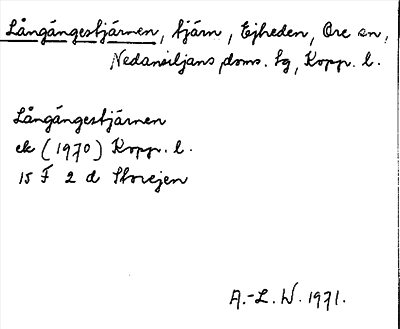 Långängestjärnen, tjärn, Ejheden, Ore sn,
Nedansiljans doms. tg, Kopp. l.
Långängestjärnen
ek (1970) Kopp. l.
15 F 2 d Storejen
A.-L. W. 1971.